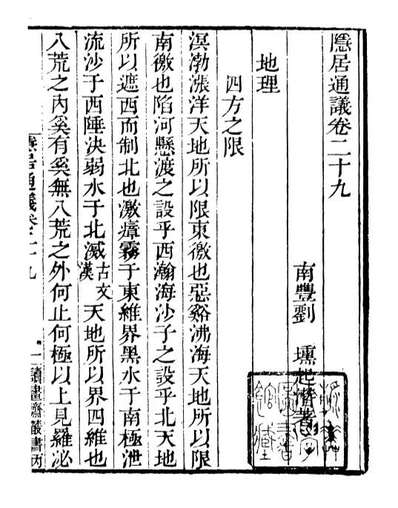 隱居通議卷二十九
南豐劉壎起潛著
地理
四方之限
溟渤漲洋天地所以限東徼也惡谿沸海天地所以限
南徼也陷河懸渡之設乎西瀚海沙子之設乎北天地
所以遮西而制北也激瘴霧于東維界黑水于南極泄
流沙于西陲決弱水于北滅古文漢天地所以界四維也
八荒之內奚有奚無八荒之外何止何極以上見羅泌
隱居通議卷二十九
一
讀畫齋叢書丙